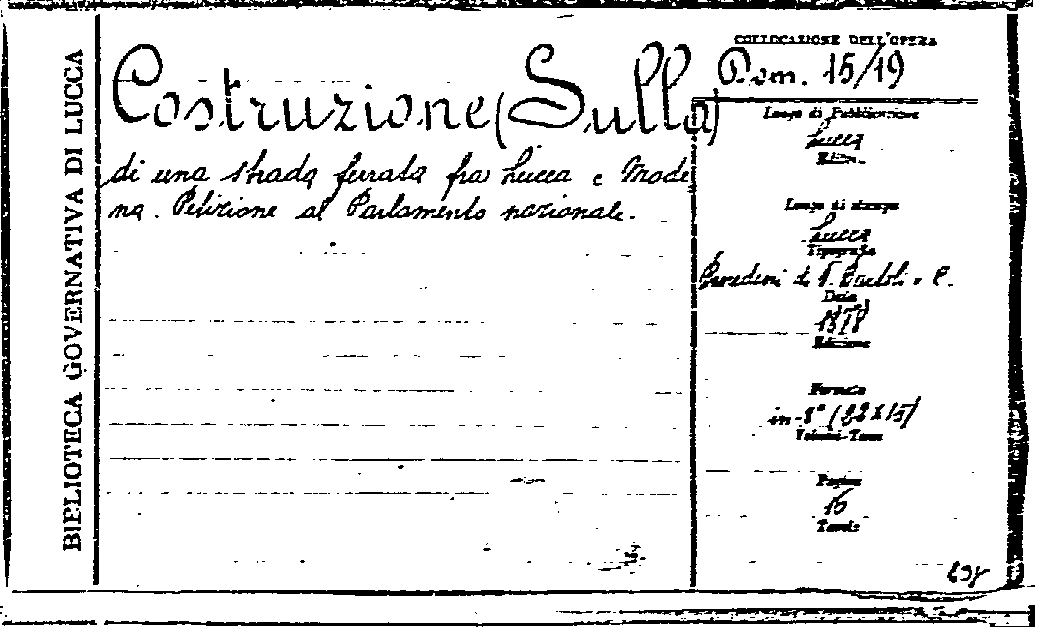 BIBLIOTECA GOVERNATIVA DI LUCCA
Costruzione (Sulla)
di una strada ferrata fra Lucca e Mode
na. Petizione al Parlamento nazionale.
COLLOCAZIONE DELL'OPERA
Pom. 15/19
Luogo di Pubblicazione
Lucca
Editore
Luogo di stampa
Lucca
Tipografia
di Bartoli e C.
Data
1878
Edizione
Formato
in-8° (22x15)
Volumi-Tomo
Pagine
16
Tavole